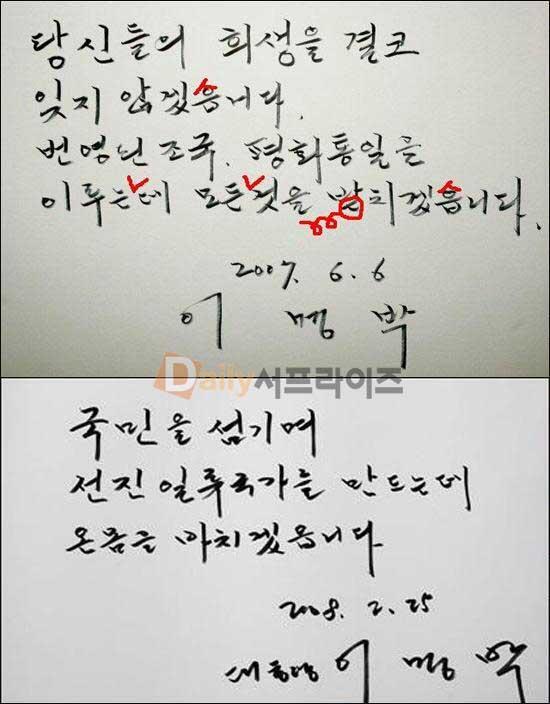 당신들의 희생을 결코
잊지 않겠읍니다.
번영된 조국, 평화통일을
이루는데 모든것을 받치겠읍니다.
2007. 6. 6
이 명 박
Daily서프라이즈
국민을 섬기며
선진일류국가를 만드는데
온몸을 바치겠읍니다
2008. 2. 25
대통령 이 명 박